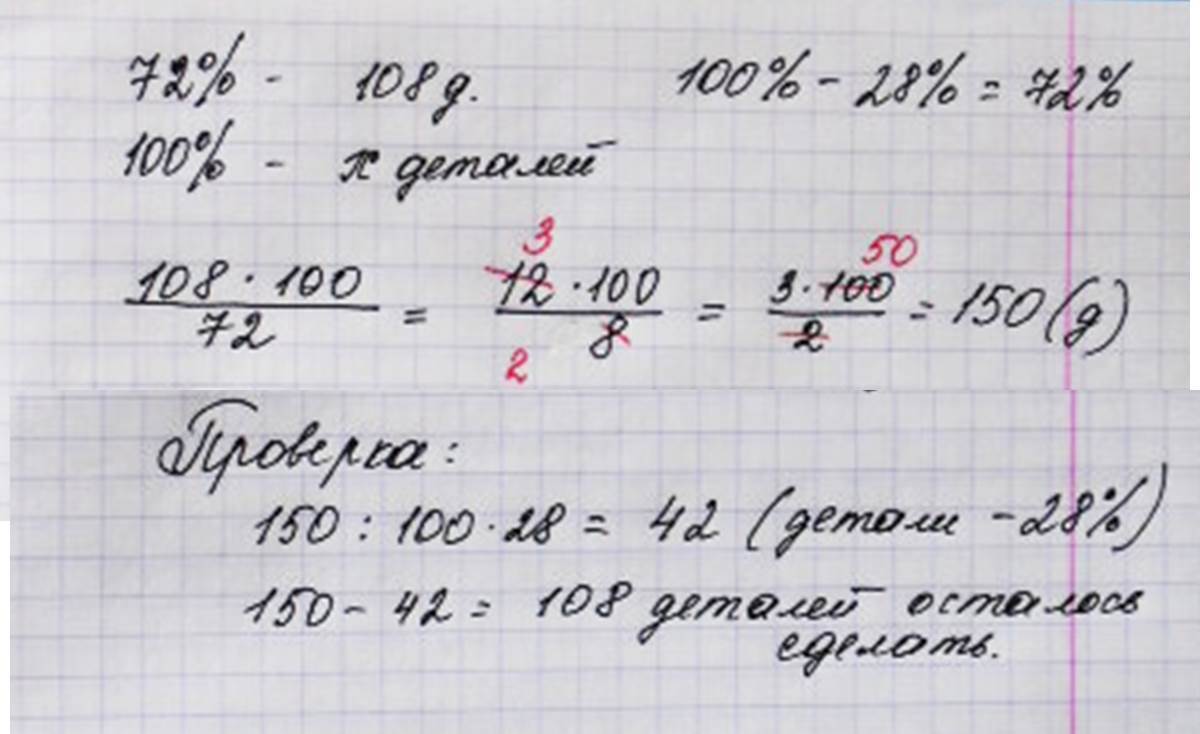 72% - 108 д. 100% - 28% = 72%
100% - x деталей
3 50
108 · 100 12 · 100 3 · 100
72 = 8 = 2 = 150 (д)
2
Проверка:
150 : 100 · 28 = 42 (детали - 28%)
150 - 42 = 108 деталей осталось
сделать.